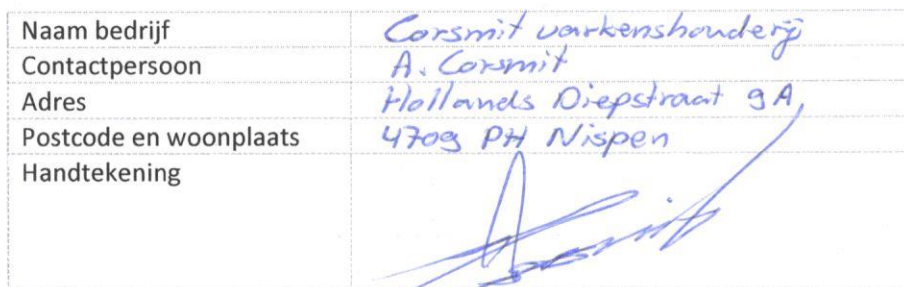 Naam bedrijf Corsmit varkenshouderij
Contactpersoon A. Corsmit
Adres Hollands Diepstraat 9A
Postcode en woonplaats 4709 PH Nispen
Handtekening